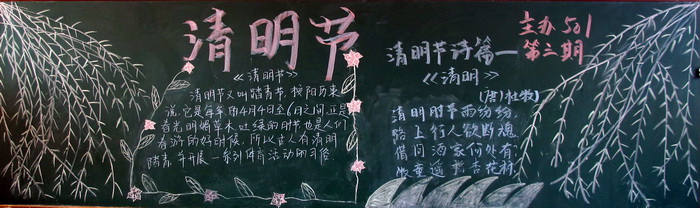 清明节
《清明节》
清明节又叫踏青节,按阳历来
说,它是每年的4月4日至6日之间,正是
春光明媚草木吐绿的时节也是人们
春游的好时候,所以古人有清明
踏青,并开展一系列体育活动的习俗
主办 501
第二期
清明节诗篇一
《清明》
(唐)杜牧
清明时节雨纷纷,
路上行人欲断魂
借问酒家何处有,
牧童遥指杏花村